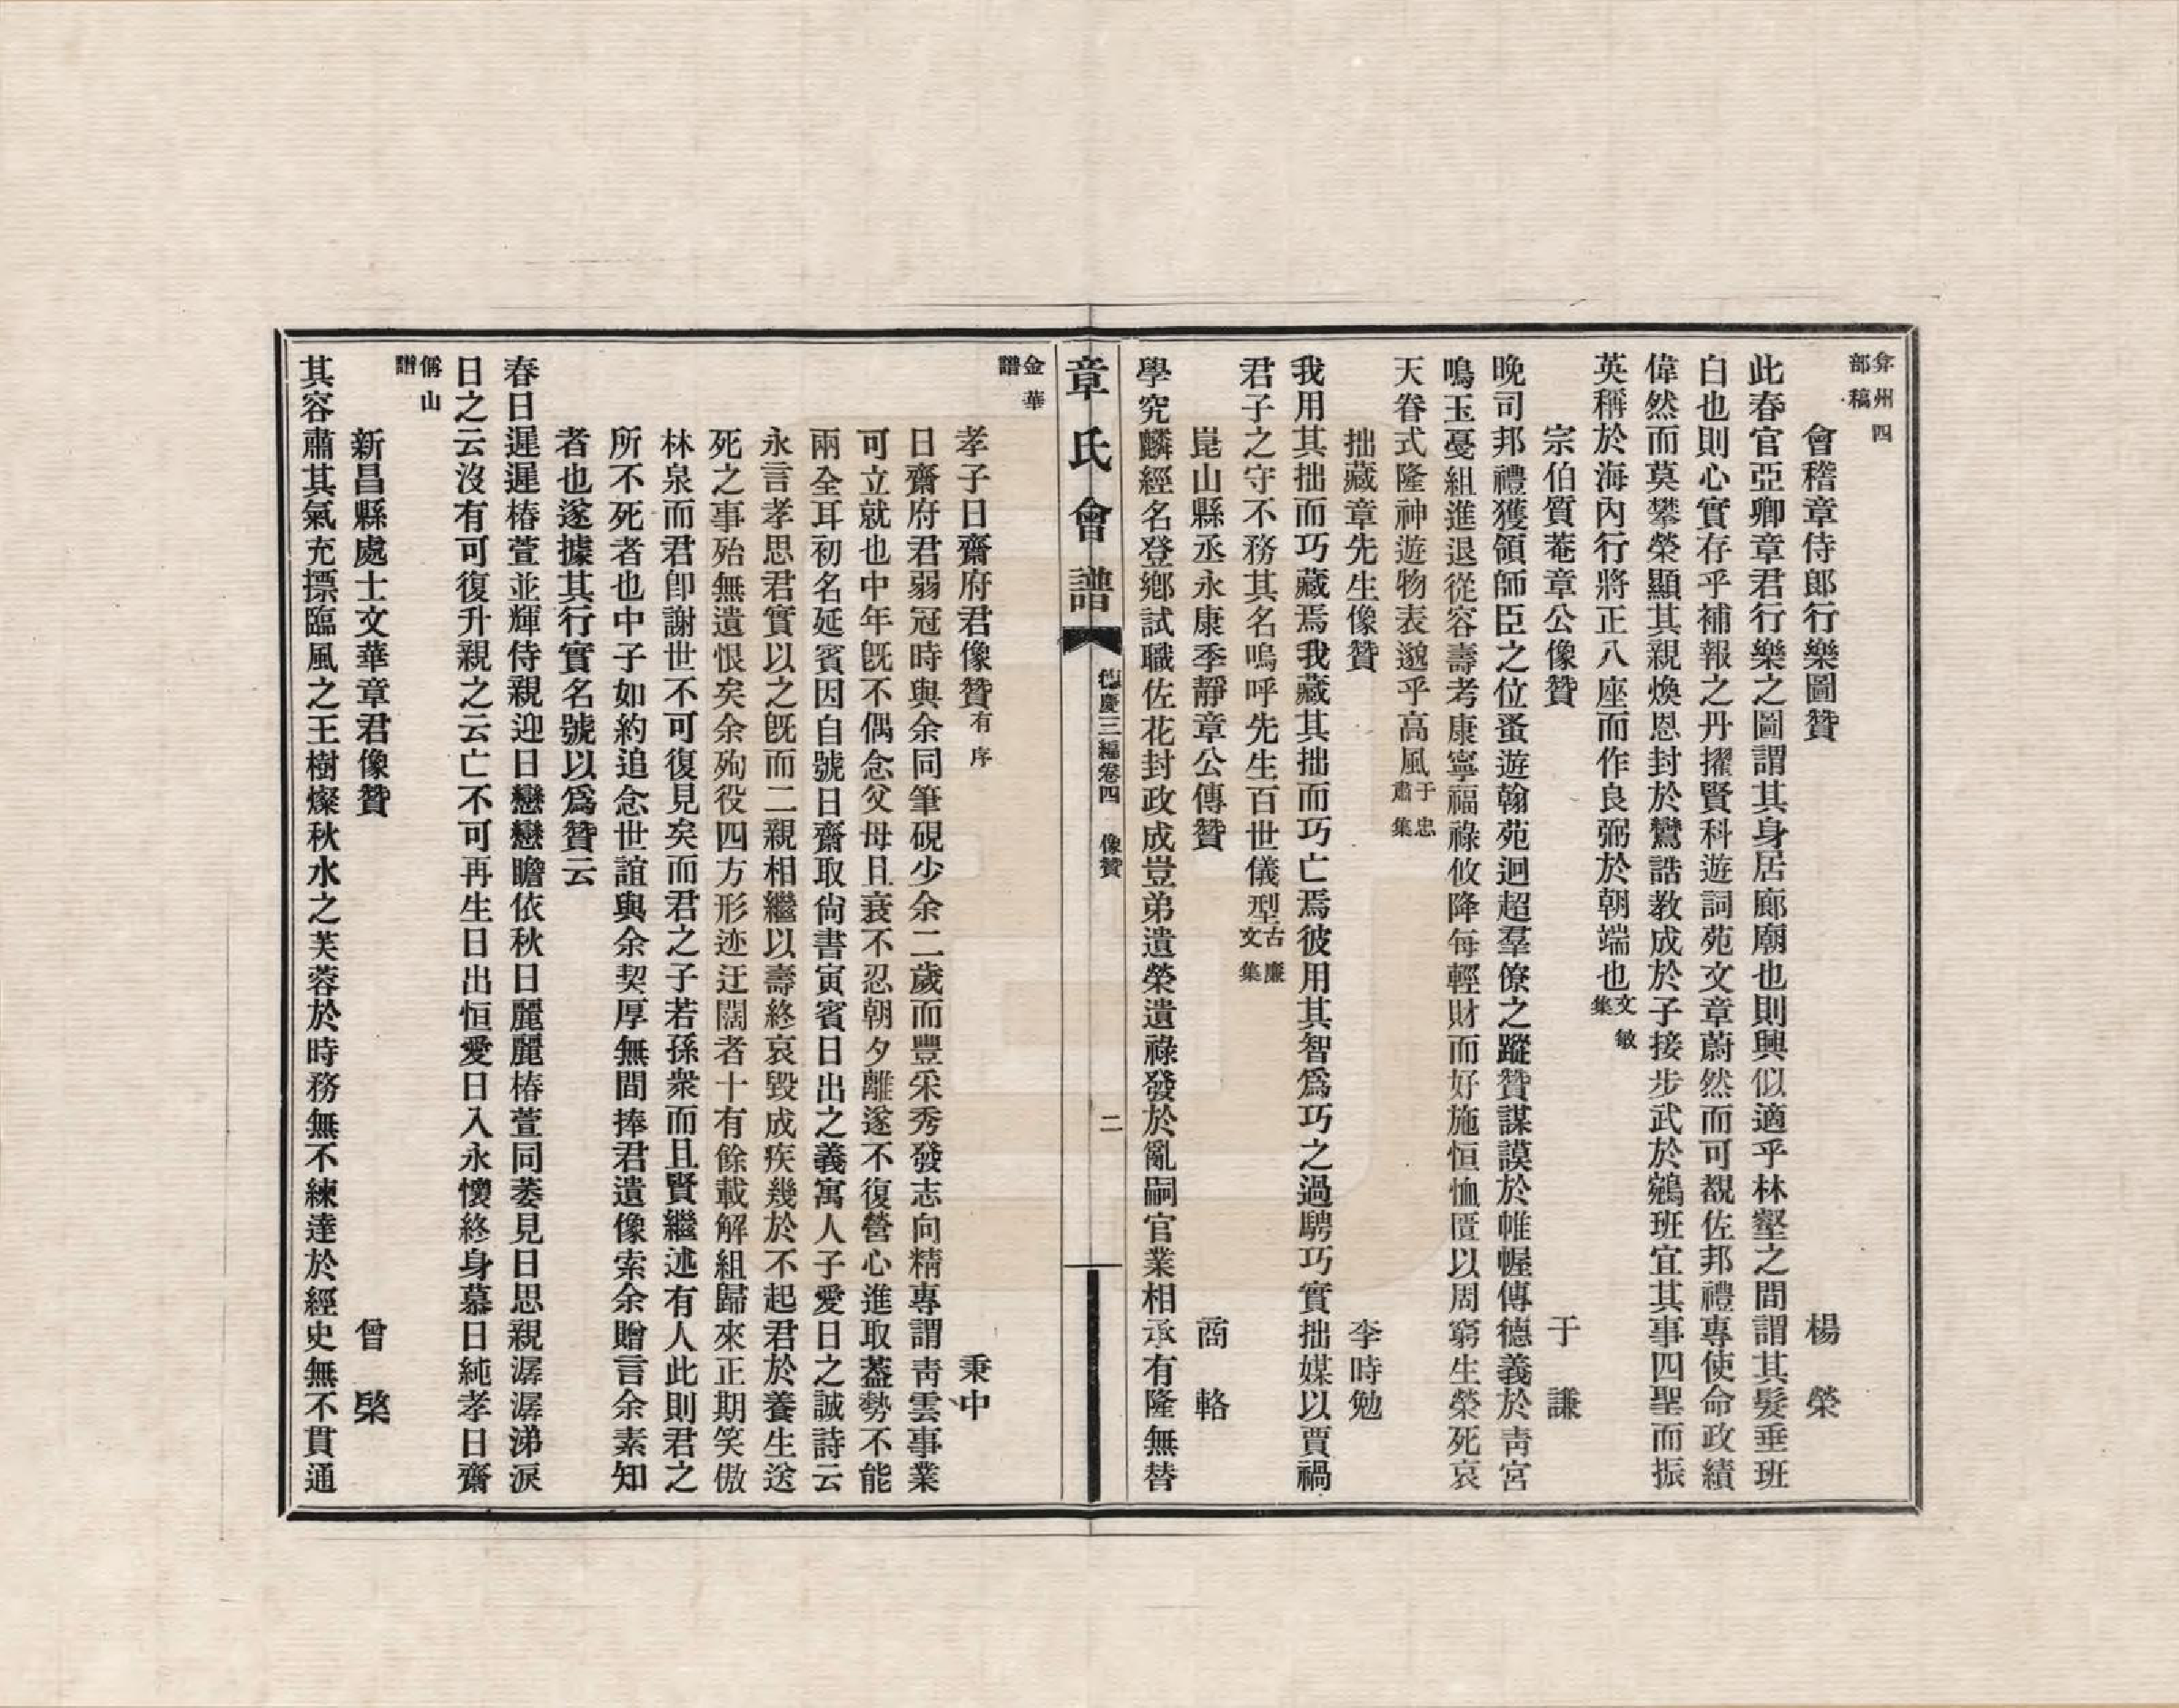 弇州四
部稿
會稽章侍郎行樂圖贊　楊　榮
此春官亞卿章君行樂之圖謂其身居廊廟也則興似適乎林壑之間謂其髮垂班
白也則心實存乎補報之丹擢賢科遊詞苑文章蔚然而可覩佐邦禮專使命政績
偉然而莫攀榮顯其親煥恩封於鸞誥教成於子接步武於鵷班宜其事四聖而振
英稱於海內行將正八座而作良弼於朝端也文敏集
宗伯質菴章公像贊　于　謙
晚司邦禮獲領師臣之位蚤遊翰苑迥超羣僚之蹤贊謀謨於帷幄傳德義於靑宮
鳴玉戞組進退從容壽考康寧福祿攸降每輕財而好施恒恤匱以周窮生榮死哀
天眷式隆神遊物表邈乎高風于忠肅集
拙藏章先生像贊　李時勉
我用其拙而巧藏焉我藏其拙而巧亡焉彼用其智爲巧之過騁巧實拙媒以賈禍
君子之守不務其名嗚呼先生百世儀型古廉文集
崑山縣丞永康季靜章公傳贊　商　輅
學究麟經名登鄕試職佐花封政成豈弟遺榮遺祿發於亂嗣官業相承有隆無替
章氏會譜　德慶三編卷四　像贊　二
金華
譜
孝子日齋府君像贊有序　秉中
日齋府君弱冠時與余同筆硯少余二歲而豐采秀發志向精專謂靑雲事業
可立就也中年旣不偶念父母且衰不忍朝夕離遂不復營心進取葢勢不能
兩全耳初名延賓因自號日齋取尙書寅賓日出之義寓人子愛日之誠詩云
永言孝思君實以之旣而二親相繼以壽終哀毀成疾幾於不起君於養生送
死之事殆無遺恨矣余殉役四方形迹迂闊者十有餘載解組歸來正期笑傲
林泉而君卽謝世不可復見矣而君之子若孫衆而且賢繼述有人此則君之
所不死者也中子如約追念世誼與余契厚無間捧君遺像索余贈言余素知
者也遂據其行實名號以爲贊云
春日遲遲椿萱並輝侍親迎日戀戀瞻依秋日麗麗椿萱同萎見日思親潺潺涕淚
日之云沒有可復升親之云亡不可再生日出恒愛日入永懷終身慕日純孝日齋
偁山
譜
新昌縣處士文華章君像贊　曾　棨
其容肅其氣充摽臨風之王樹燦秋水之芙蓉於時務無不練達於經史無不貫通